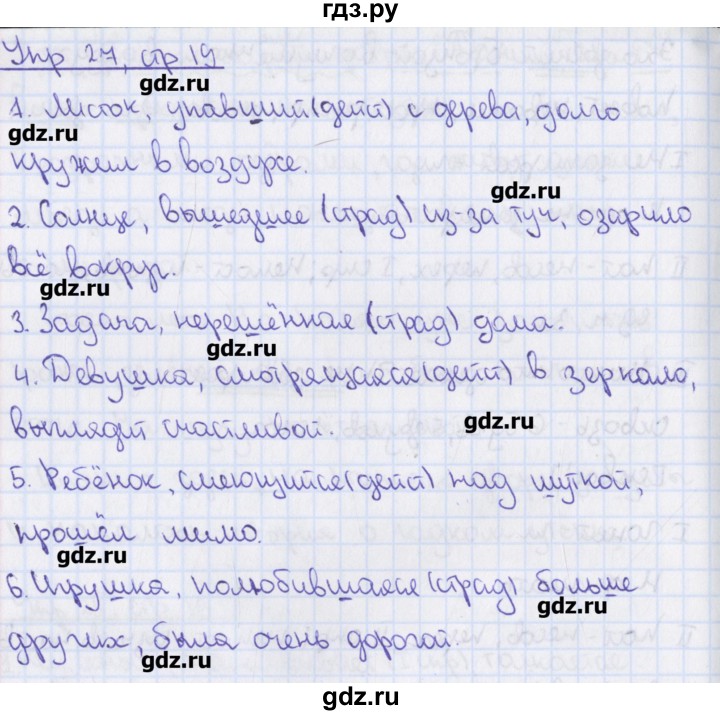 гдз.ру
Упр 24, стр 19
gdz.ru
1. Листок, упавший (дейст) с дерева, долго
gdz.ru
кружил в воздухе.
gdz.ru
2. Солнце, вышедшее (страд) из-за туч, озарило
всё вокруг.
gdz.ru
3. Задача, нерешённая (страд) дома.
gdz.ru
4. Девушка, смотрящаяся (дейст) в зеркало,
gdz.ru
выглядит счастливой.
5. Ребёнок, смеющийся (дейст) над шуткой,
прошёл мимо.
gdz.ru
6. Игрушка, полюбившаяся (страд) больше
gdz.ru
других, была очень дорогой.
gdz.ru
gdz.ru